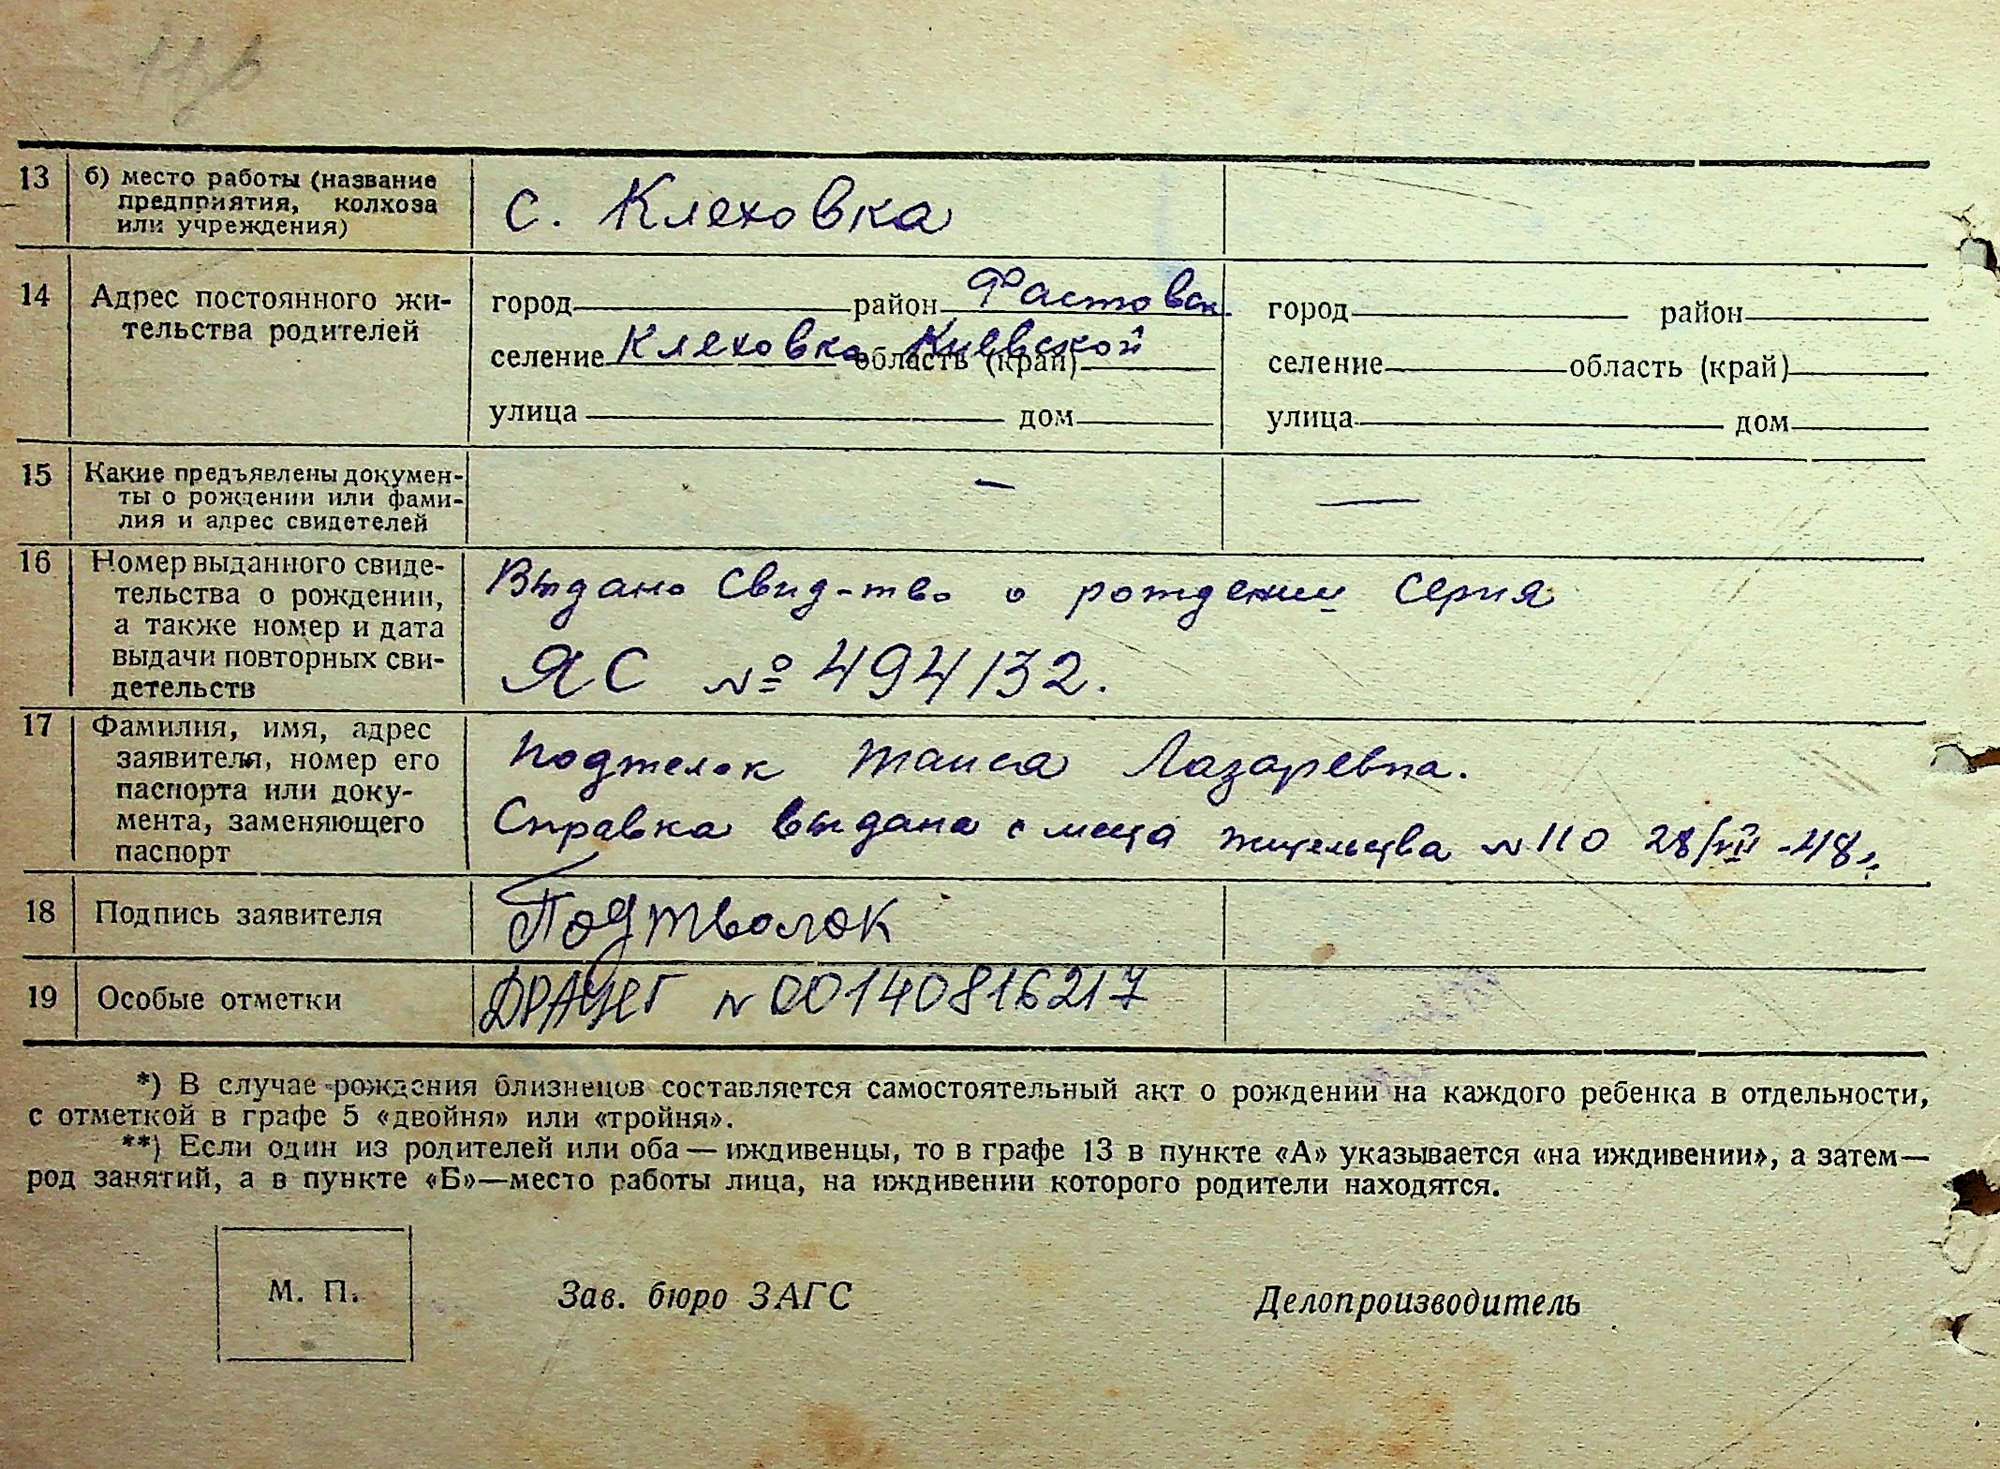 13 б) место работы (название
предприятия, колхоза
или учреждения)
с. Клеховка
14 Адрес постоянного жи-
тельства родителей
город район Фастовск. город район
селение Клеховка область (край) Киевской селение область (край)
улица дом улица дом
15 Какие предъявлены докумен-
ты о рождении или фами-
лия и адрес свидетелей
— —
16 Номер выданного свиде-
тельства о рождении,
а также номер и дата
выдачи повторных сви-
детельств
Выдано свид-тво о рождении серия
ЯС № 494132.
17 Фамилия, имя, адрес
заявителя, номер его
паспорта или доку-
мента, заменяющего
паспорт
Таиса Лазаревна.
Справка выдана с места жительства N 110 28/XII-48г.
18 Подпись заявителя
19 Особые отметки
ДРАЦСГ N 00140816217
*) В случае рождения близнецов составляется самостоятельный акт о рождении на каждого ребенка в отдельности,
с отметкой в графе 5 «двойня» или «тройня».
**) Если один из родителей или оба — иждивенцы, то в графе 13 в пункте «А» указывается «на иждивении», а затем—
род занятий, а в пункте «Б»—место работы лица, на иждивении которого родители находятся.
М. П.
Зав. бюро ЗАГС
Делопроизводитель